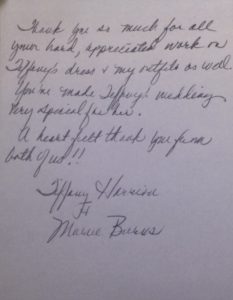 Thank you so much for all
your hard, appreciated work on
Tiffany's dress & my outfits as well.
You've made Tiffany's wedding
very special for her.
A heart felt thank you from
both of us!!
Tiffany
&
Burns